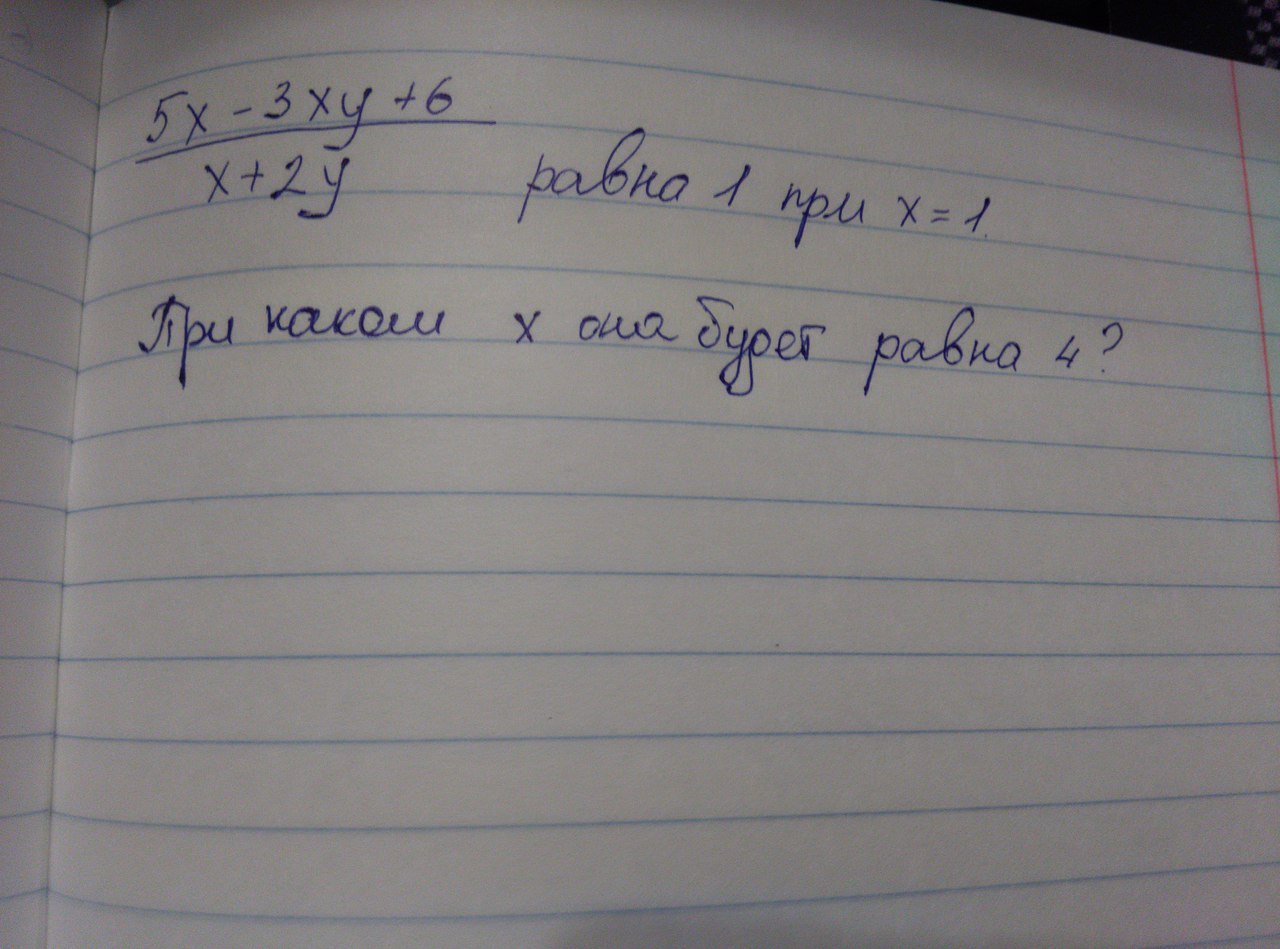 5x - 3xy + 6
x + 2y равна 1 при x = 1.
При каком x она будет равна 4?